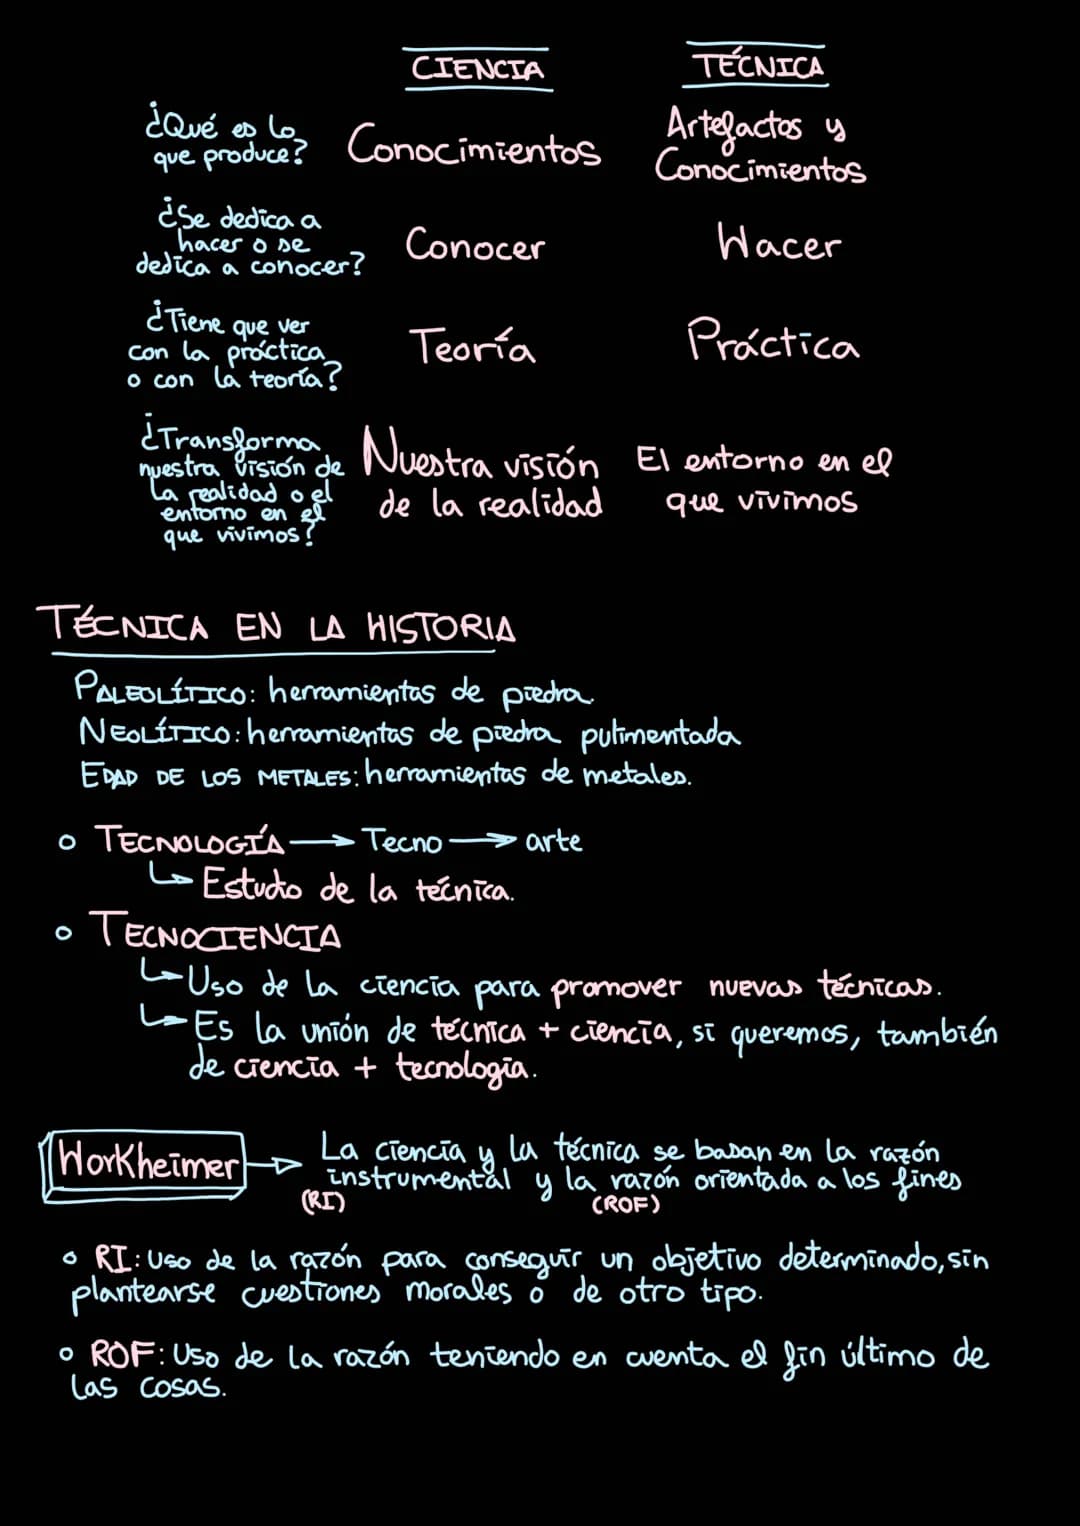 CIENCIA TÉCNICA
¿Qué es lo
que produce? Conocimientos Artefactos y
Conocimientos
¿Se dedica a
hacer o se
dedica a conocer? Conocer Hacer
¿Tiene que ver
con la práctica
o con la teoría? Teoría Práctica
¿Transforma
nuestra visión de
la realidad o el
entorno en el
que vivimos?
Nuestra visión
de la realidad
El entorno en el
que vivimos
TÉCNICA EN LA HISTORIA
PALEOLÍTICO: herramientas de piedra.
NEOLÍTICO: herramientas de piedra pulimentada
EDAD DE LOS METALES: herramientas de metales.
o TECNOLOGÍA → Tecno → arte
↳ Estudo de la técnica.
o TECNOCIENCIA
↳ Uso de la ciencia para promover nuevas técnicas.
↳ Es la unión de técnica + ciencia, si queremos, también
de ciencia + tecnología.
Horkheimer → La ciencia y la técnica se basan en la razón
instrumental y la razón orientada a los fines
(RI) (ROF)
o RI: Uso de la razón para conseguir un objetivo determinado, sin
plantearse cuestiones morales o de otro tipo.
o ROF: Uso de la razón teniendo en cuenta el fin último de
las cosas.